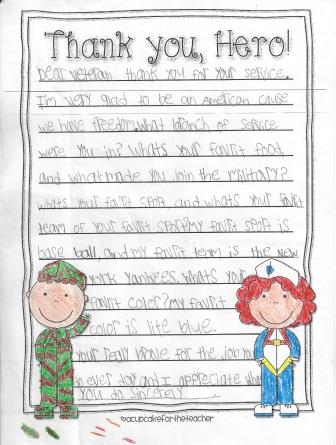 Thank you, Hero!
Dear veteran thank you for your service.
I'm very glad to be an American cause
we have freedom. what branch of service
were you in? whats your favrit food
and what made you join the military?
whats your favrit sport and whats your favrit
team of your favrit sport? my favrit sport is
base ball, and my favrit team is the new
york Yankees. whats your
favrit color? my favrit
color is lite blue.
your realy brave for the job you
ever do and I appreciate what
you do sincerely
©acupcakefortheteacher